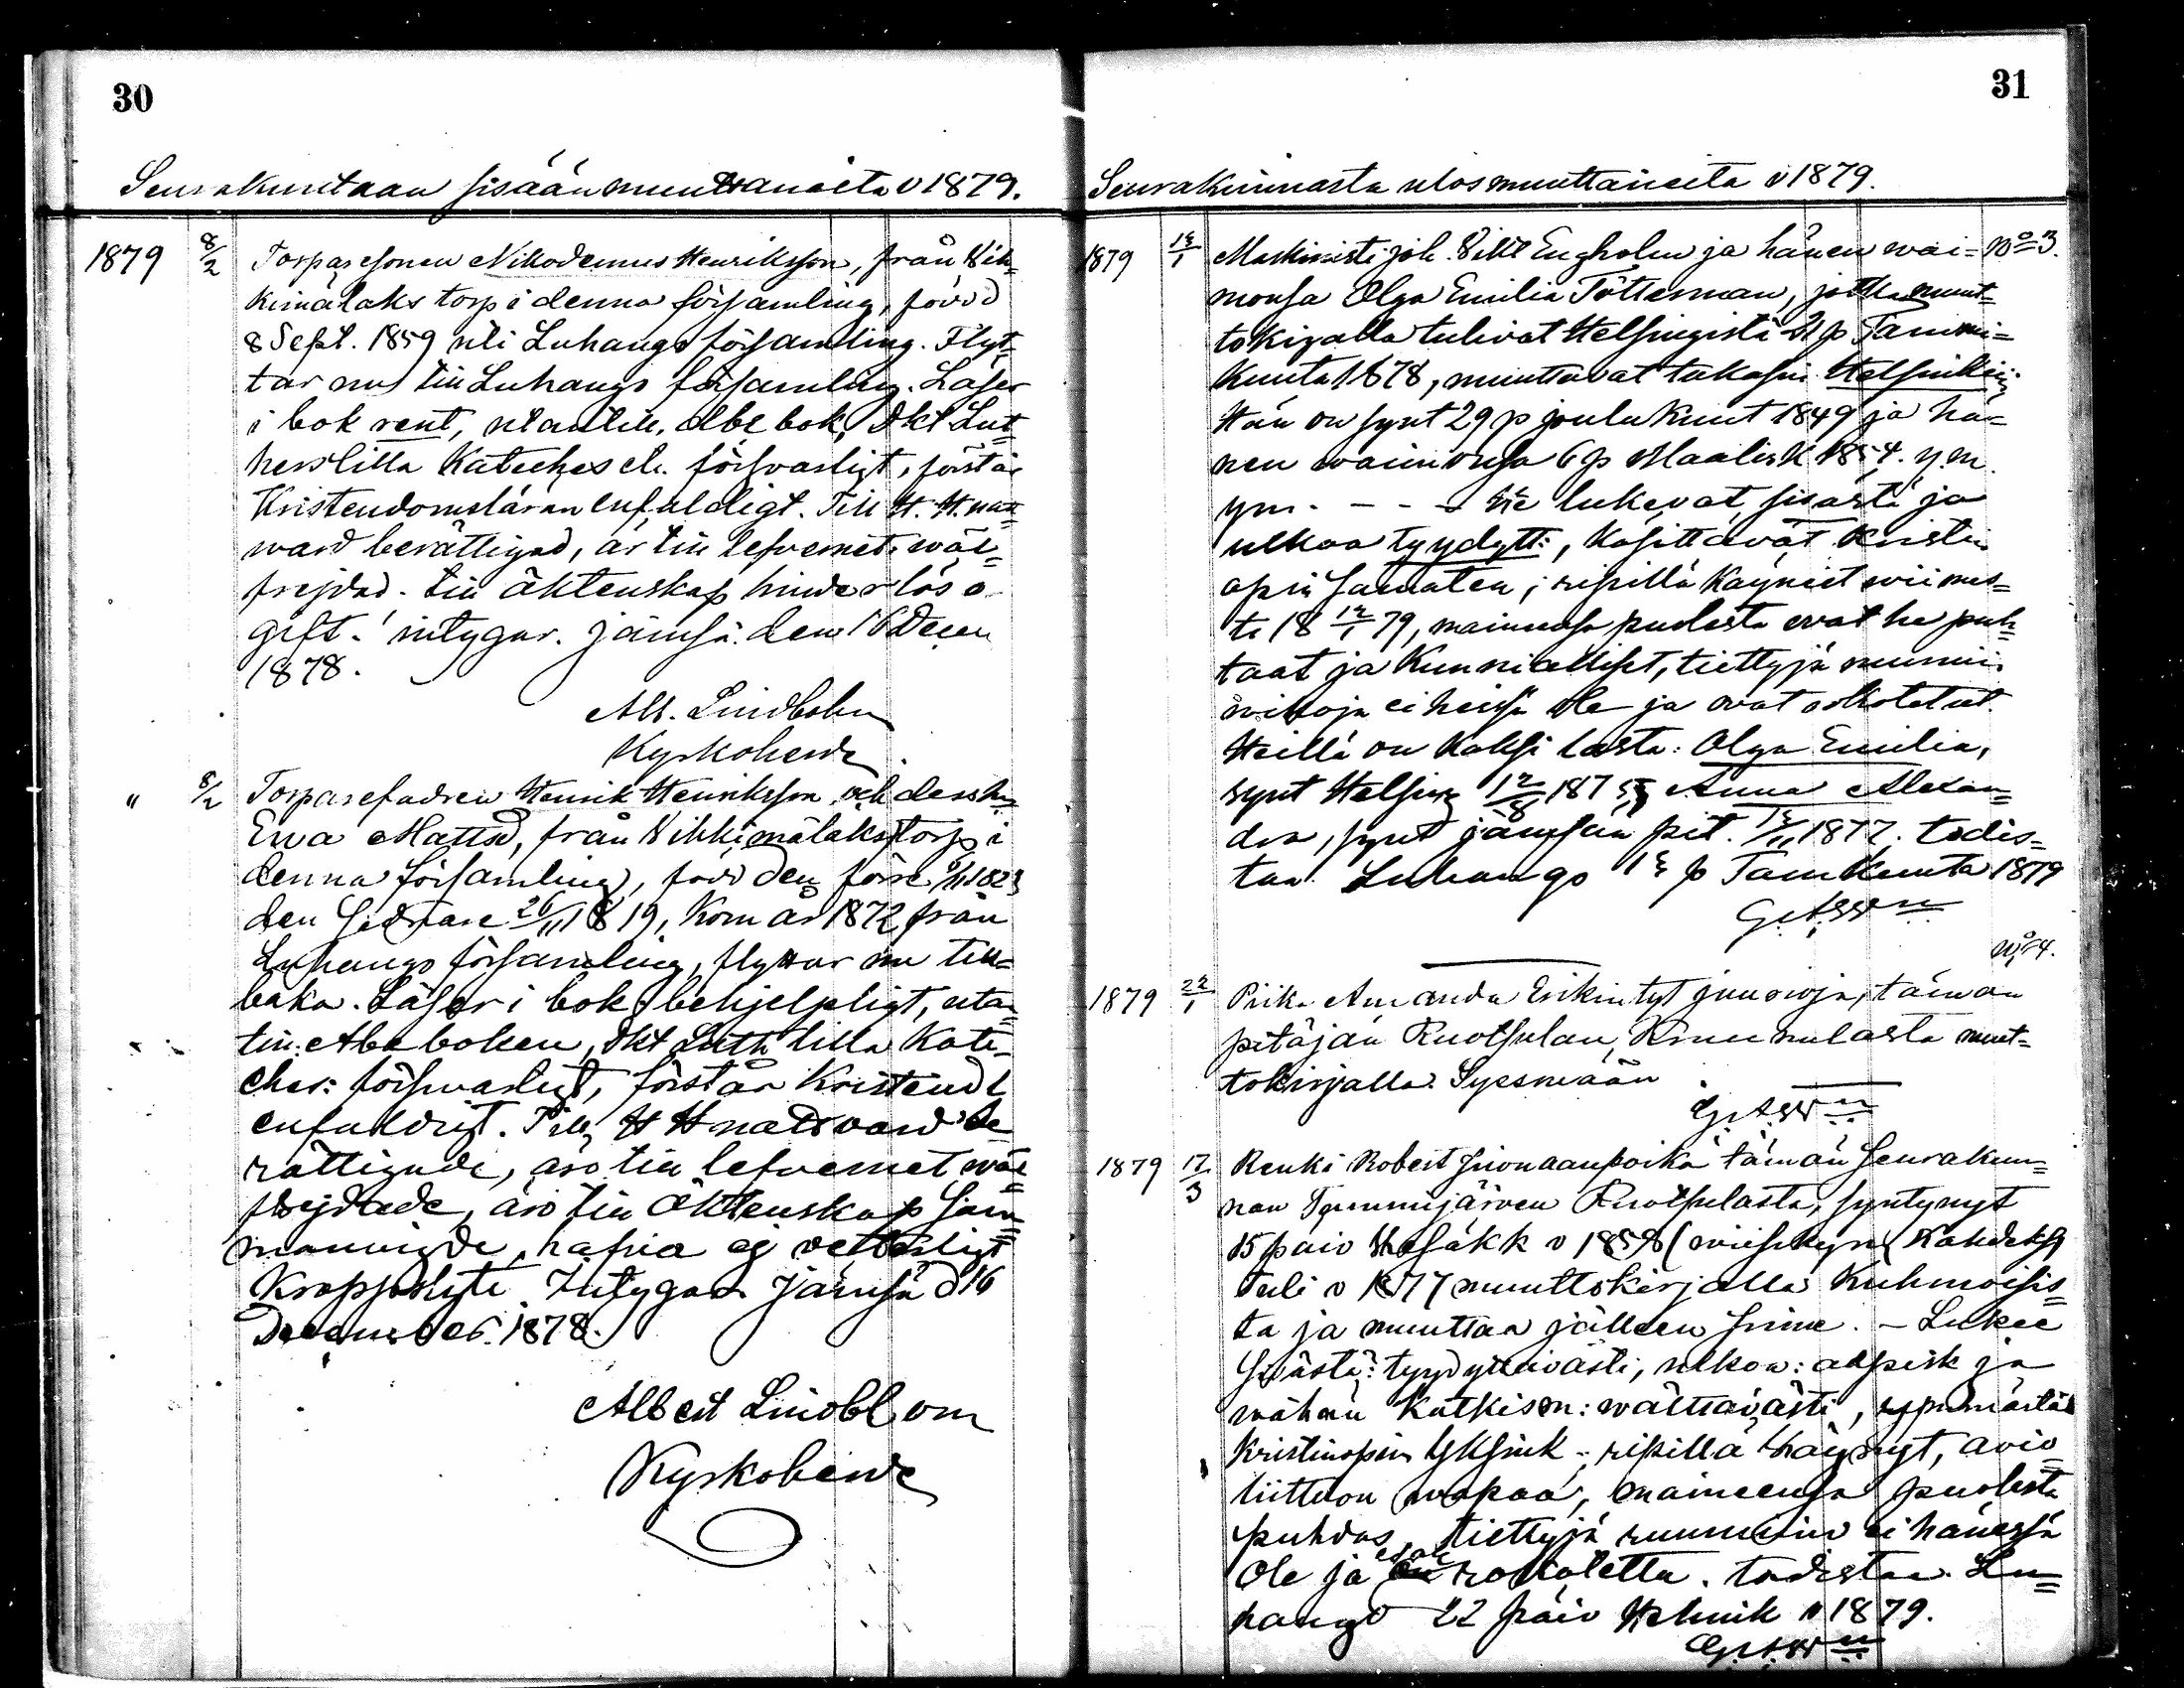 30
Seurakuntaan sisään muuttaneita v 1879.
1879 8/2 Torparesonen Nikodemus Henriksson, från Vih-
kimäläks torp i denna församling, född
8 Sept. 1859 uti Luhango församling. Flyt-
tar nu till Luhango församling. Läser
i bok rent, utantill. Abc bok, Dkt Lut-
hers lilla Kateches el. försvarligt, förstår
Kristendomsläran enfaldigt. Till H. H. natt-
vard berättigad, är till lefvernet wäl-
frejdad. till äktenskap hinderlös o
gift. intygar. Jämsä den 16 Decem
1878.
Alb. Lindblom
Kyrkoherde
" 8/2 Torparefadren Henrik Henriksson och dess hu
Ewa Mattsd, från Vihkimäläks torp i
denna församling, född den förre 1823
den sednare 26/11 1819, Kom år 1872 från
Luhango församling, flyttar nu till-
baka. Läser i bok behjelpligt, utan-
till: Abc boken, Dkt Luth lilla Kate-
ches: försvarligt, förstår Kristendl
enfaldigt. Till H H nattvard be-
rättigade, äro till lefvernet wäl-
frejdade, äro till Äktenskap sam-
manvigde, hafva ej vetterligt
Kroppslyte. Intygar Jämsä d 16
December. 1878.
Albert Lindblom
Kyrkoherde
31
Seurakunnasta ulosmuuttaneita v 1879.
1879 Maskinisti joh. Vilh Engholm ja hänen wai- No 3.
monsa Olga Emilia Tötterman, jotka muut-
tokirjalla tulivat Helsingistä 21 p Tammi-
kuuta 1878, muuttavat takasin Helsinkiin
Hän on synt 29 p joulukuut 1849 ja hä-
nen waimonsa 6 p Maalisk 1854. y.m.
ym. - - - He lukevat sisästä ja
ulkoa tyydytt:, käsittävät Kristin
opin samaten; ripillä käyneet wiimes-
ti 18 12/1 79, mainensa puolesta ovat he puh-
taat ja Kunnialliset, tiettyjä ruumiin
wikoja ei heissä ole ja ovat rokotetut.
Heillä on kaksi lasta: Olga Emilia,
synt Helsing 12/8 187 Anna Alexan-
dra, synt Jämsän pit. 1877. todis-
taa. Luhango p Tamkuuta 1879
No 4.
1879 22/1 Piika Amanda Erikintyt juusioja, tämän
pitäjän Ruotsulan, muut-
tokirjalla. Sysmään
1879 17/3 Renki Robert Juonaanpoika tämän seurakun-
nan Tammijärven Ruotsulasta, syntynyt
15 päiv Kesäkk v 1858 (wiisikym Kahdeks)
tuli v 1877 muuttokirjalla Kuhmoisis-
ta ja muuttaa jälleen sinne. - Lukee
sisästä: tyydyttävästi, ulkoa: aapisk ja
wähän Katkism: wälttävästi, ymmärtää
Kristinopin yksink - ripillä käynyt, avio
liittoon wapaa, maineensa puolesta
puhdas, tiettyjä ruumiin ei hänessä
ole ja ei ole rokotettu. todistaa Lu-
hango 22 päiv Helmik v 1879.